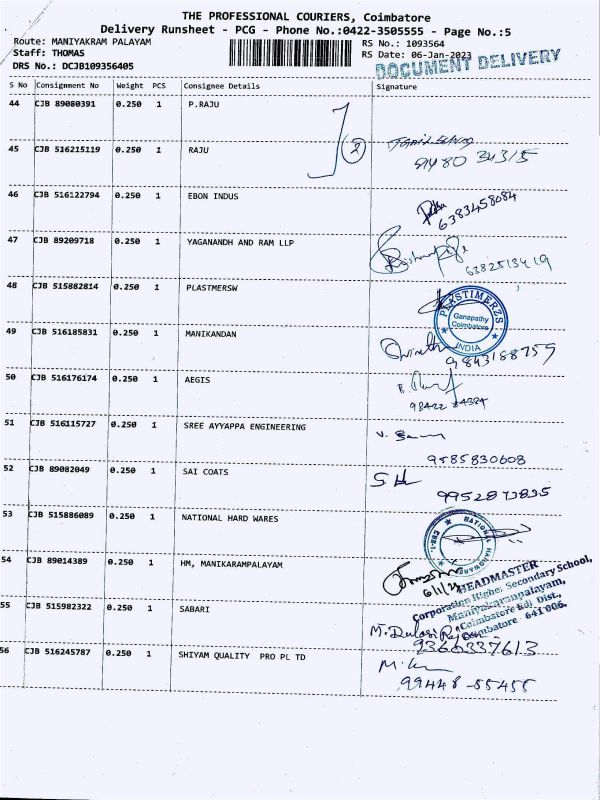 THE PROFESSIONAL COURIERS, Coimbatore
Delivery Runsheet - PCG - Phone No.:0422-3505555 - Page No.:5
Route: MANIYAKRAM PALAYAM
RS No.: 1093564
Staff: THOMAS
RS Date: 06-Jan-2023
DRS No.: DCJB109356405
DOCUMENT DELIVERY
S No Consignment No Weight PCS Consignee Details Signature
44 CJB 89080391 0.250 1 P.RAJU
45 CJB 516215119 0.250 1 RAJU
2
46 CJB 516122794 0.250 1 EBON INDUS
6383458084
47 CJB 89209718 0.250 1 YAGANANDH AND RAM LLP
6382513419
48 CJB 515882814 0.250 1 PLASTMERSW
PERSTIMERZS
Ganapathy
Coimbatore
INDIA
49 CJB 516185831 0.250 1 MANIKANDAN
9843188759
50 CJB 516176174 0.250 1 AEGIS
51 CJB 516115727 0.250 1 SREE AYYAPPA ENGINEERING
9585830608
52 CJB 89082049 0.250 1 SAI COATS
9952873835
53 CJB 515886089 0.250 1 NATIONAL HARD WARES
NATIONAL HARDWARES
54 CJB 89014389 0.250 1 HM, MANIKARAMPALAYAM
HEADMASTER
Corporation Higher Secondary School,
Maniyakarampalayam,
Coimbatore Edl Dist.,
Coimbatore - 641 006.
55 CJB 515982322 0.250 1 SABARI
9360337613
56 CJB 516245787 0.250 1 SHIYAM QUALITY PRO PL TD
99448-55455